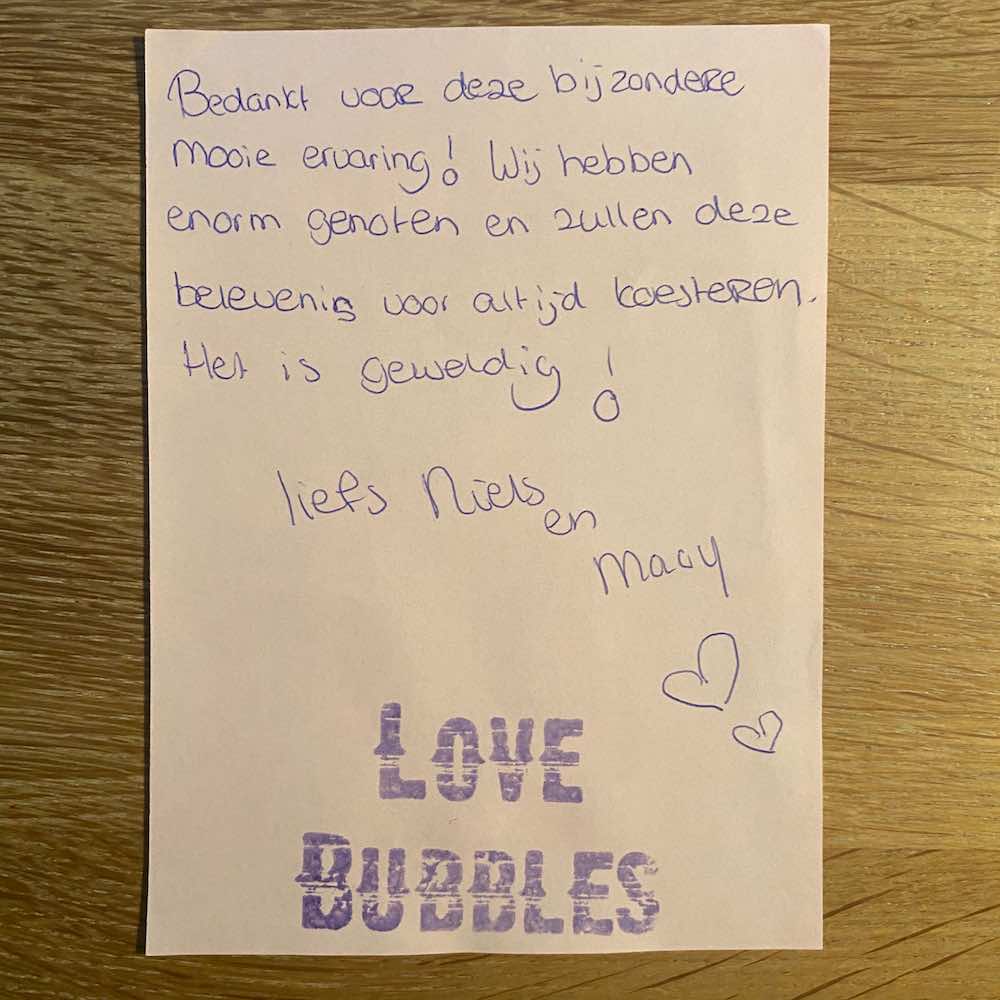 Bedankt voor deze bijzondere
mooie ervaring! Wij hebben
enorm genoten en zullen deze
belevenis voor altijd koesteren.
Het is geweldig!
liefs Niels
en
Maay
LOVE
BUBBLES